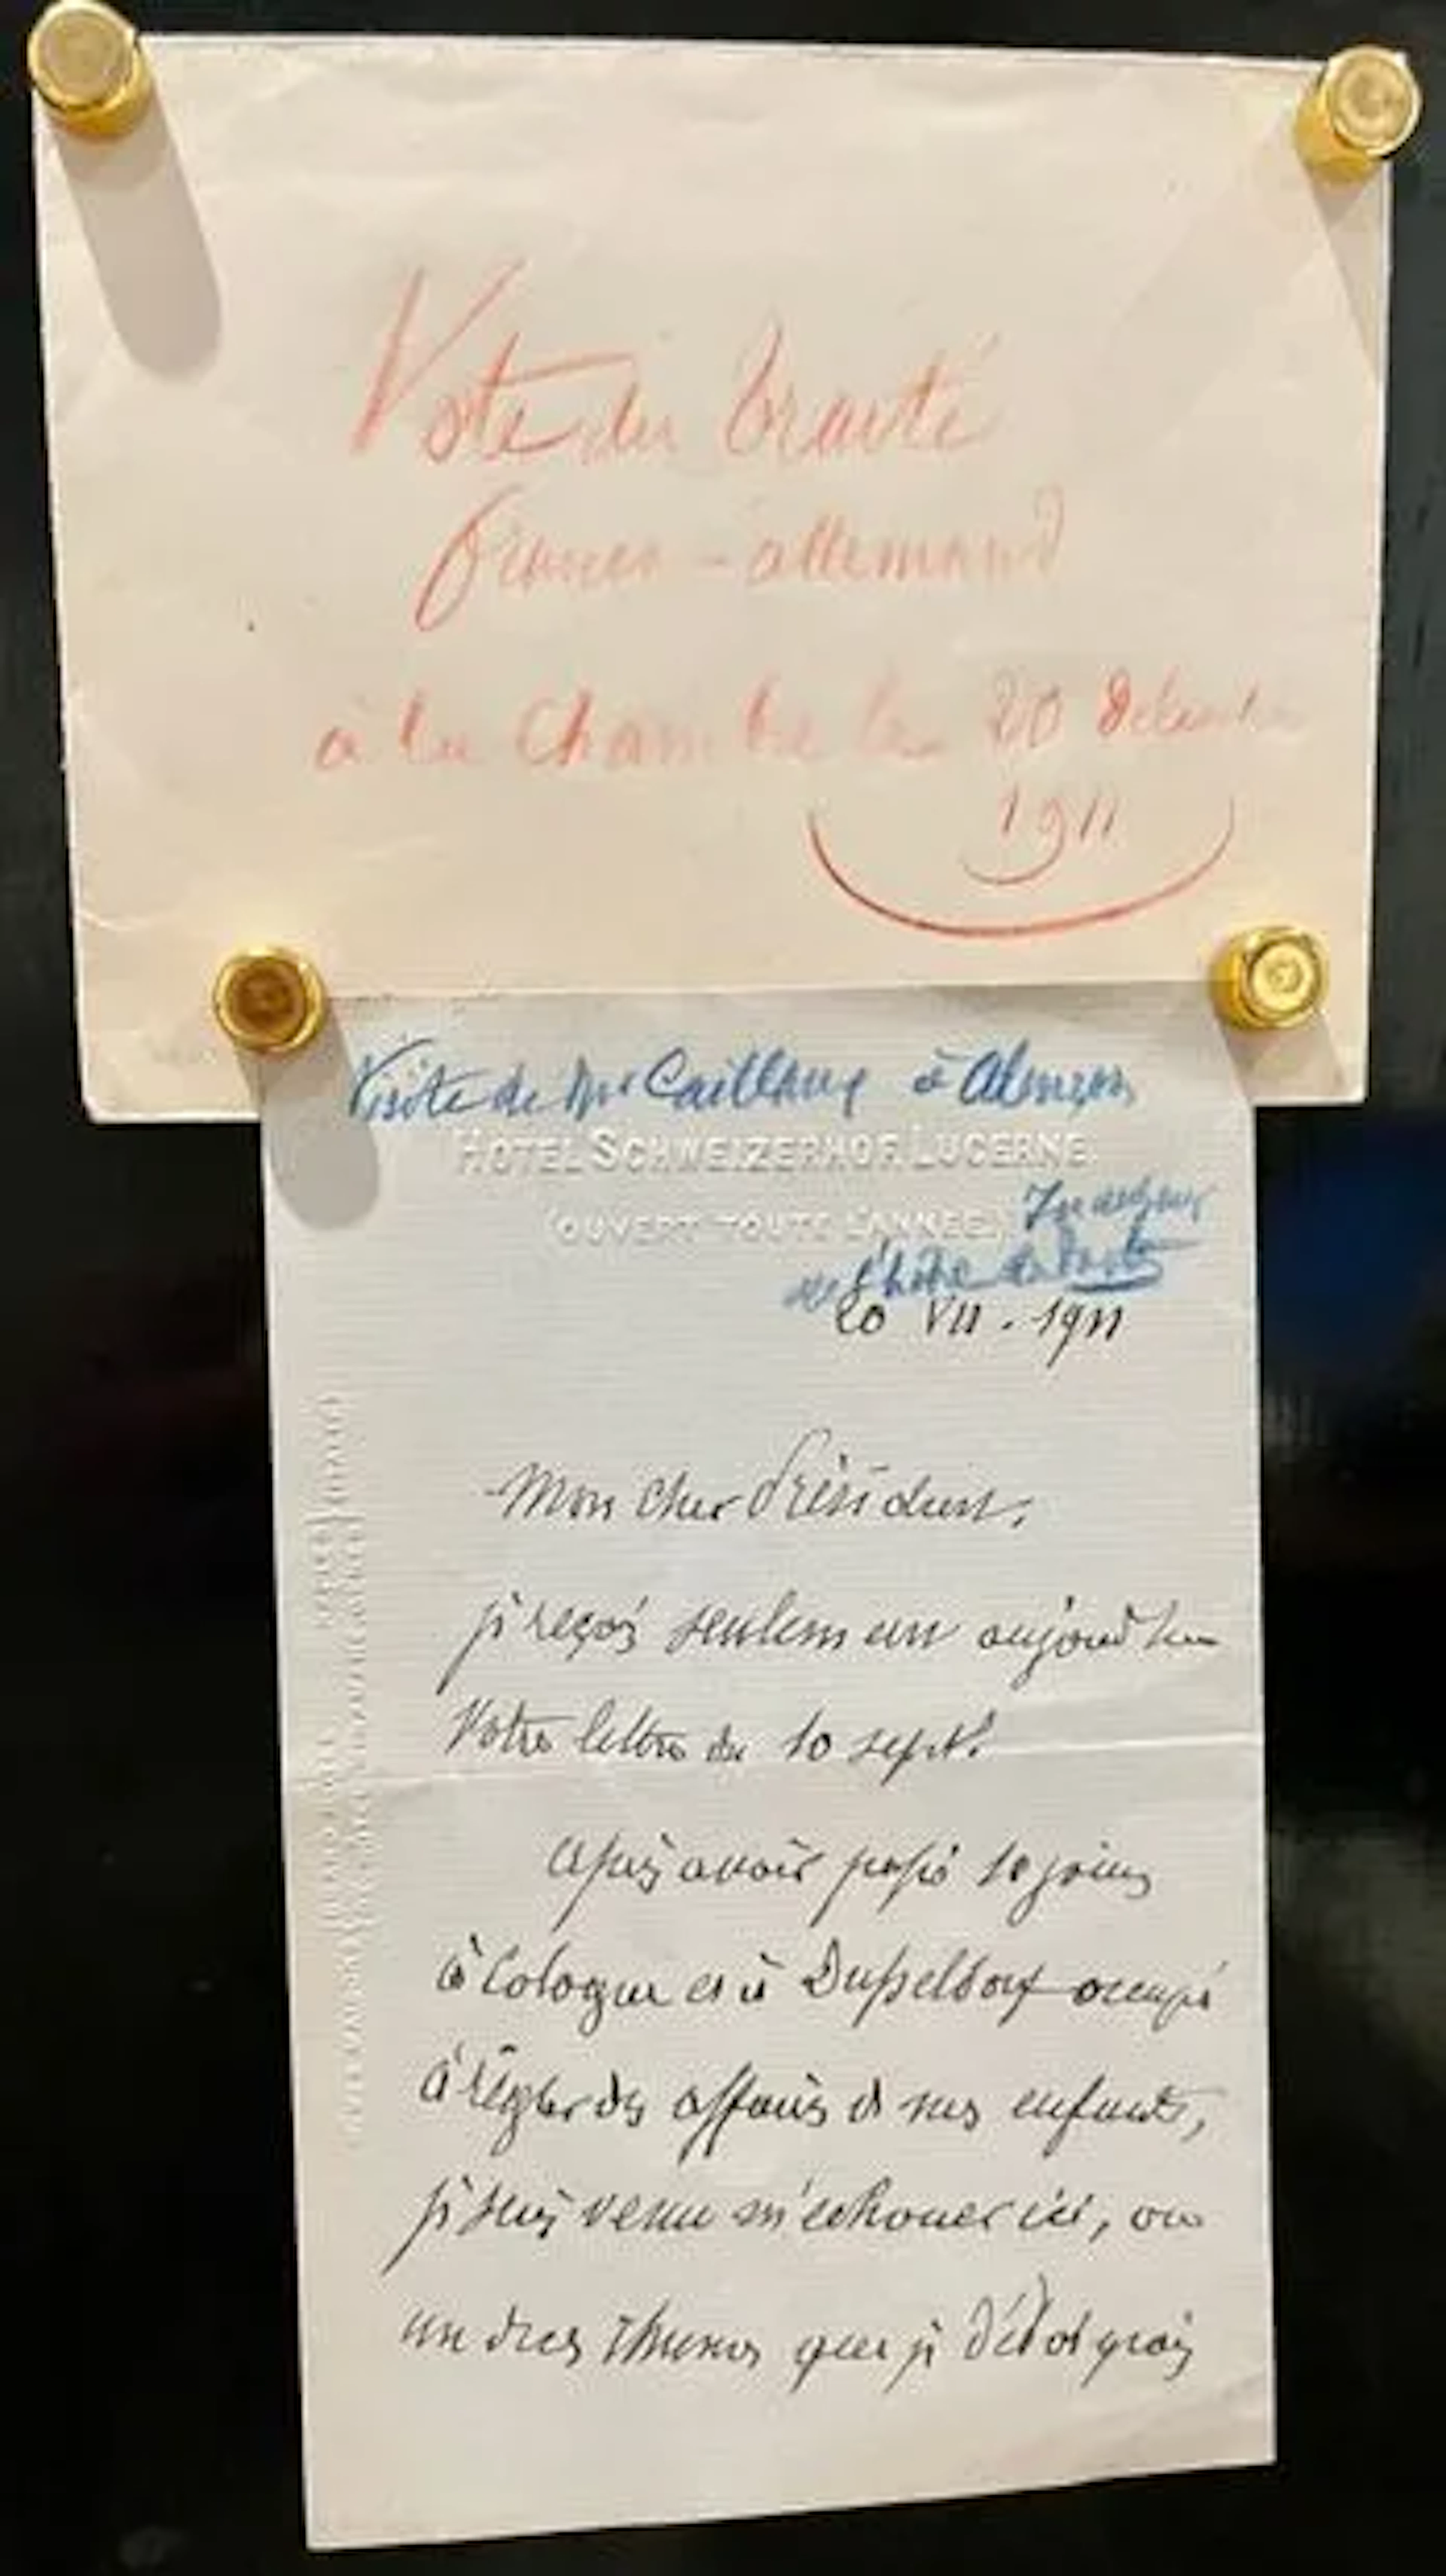 Vote du traité
franco-allemand
à la Chambre le 20 décembre
1911
Visite de Mr Caillaux à Alençon
HOTEL SCHWEIZERHOF. LUCERNE.
(OUVERT TOUTE L'ANNÉE.)
Inauguration
de l'hôtel des Postes
20 VII. 1911
Mon cher Président,
je reçois seulement aujourd'hui
votre lettre du 10 sept.
Après avoir passé 10 jours
à Cologne et à Dusseldorf occupé
à régler des affaires de mes enfants,
je suis venu m'échouer ici, où
un des que je